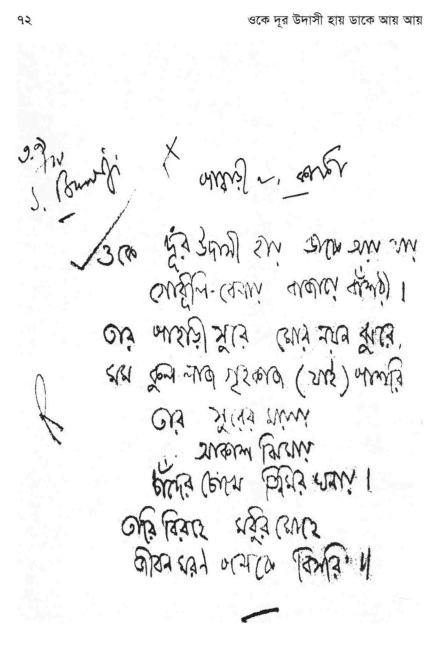 ৭২
ওকে দূর উদাসী হায় ডাকে আয় আয়
পাহাড়ী
ওকে দূর উদাসী হায় ডাকে আয় আয়
গোধূলি-বেলায় বাজায়ে বাঁশরী।
তার পাহাড়ী সুরে মোর নয়ন ঝুরে,
মম কুল লাজ গৃহকাজ (যাই) পাশরি
তার সুরের মায়ায়
আকাশ ঝিমায়
চাঁদের চোখে তিমির ঘনায়।
তারি বিরহে মধুর মোহে
জীবন মরণ বিসরি॥